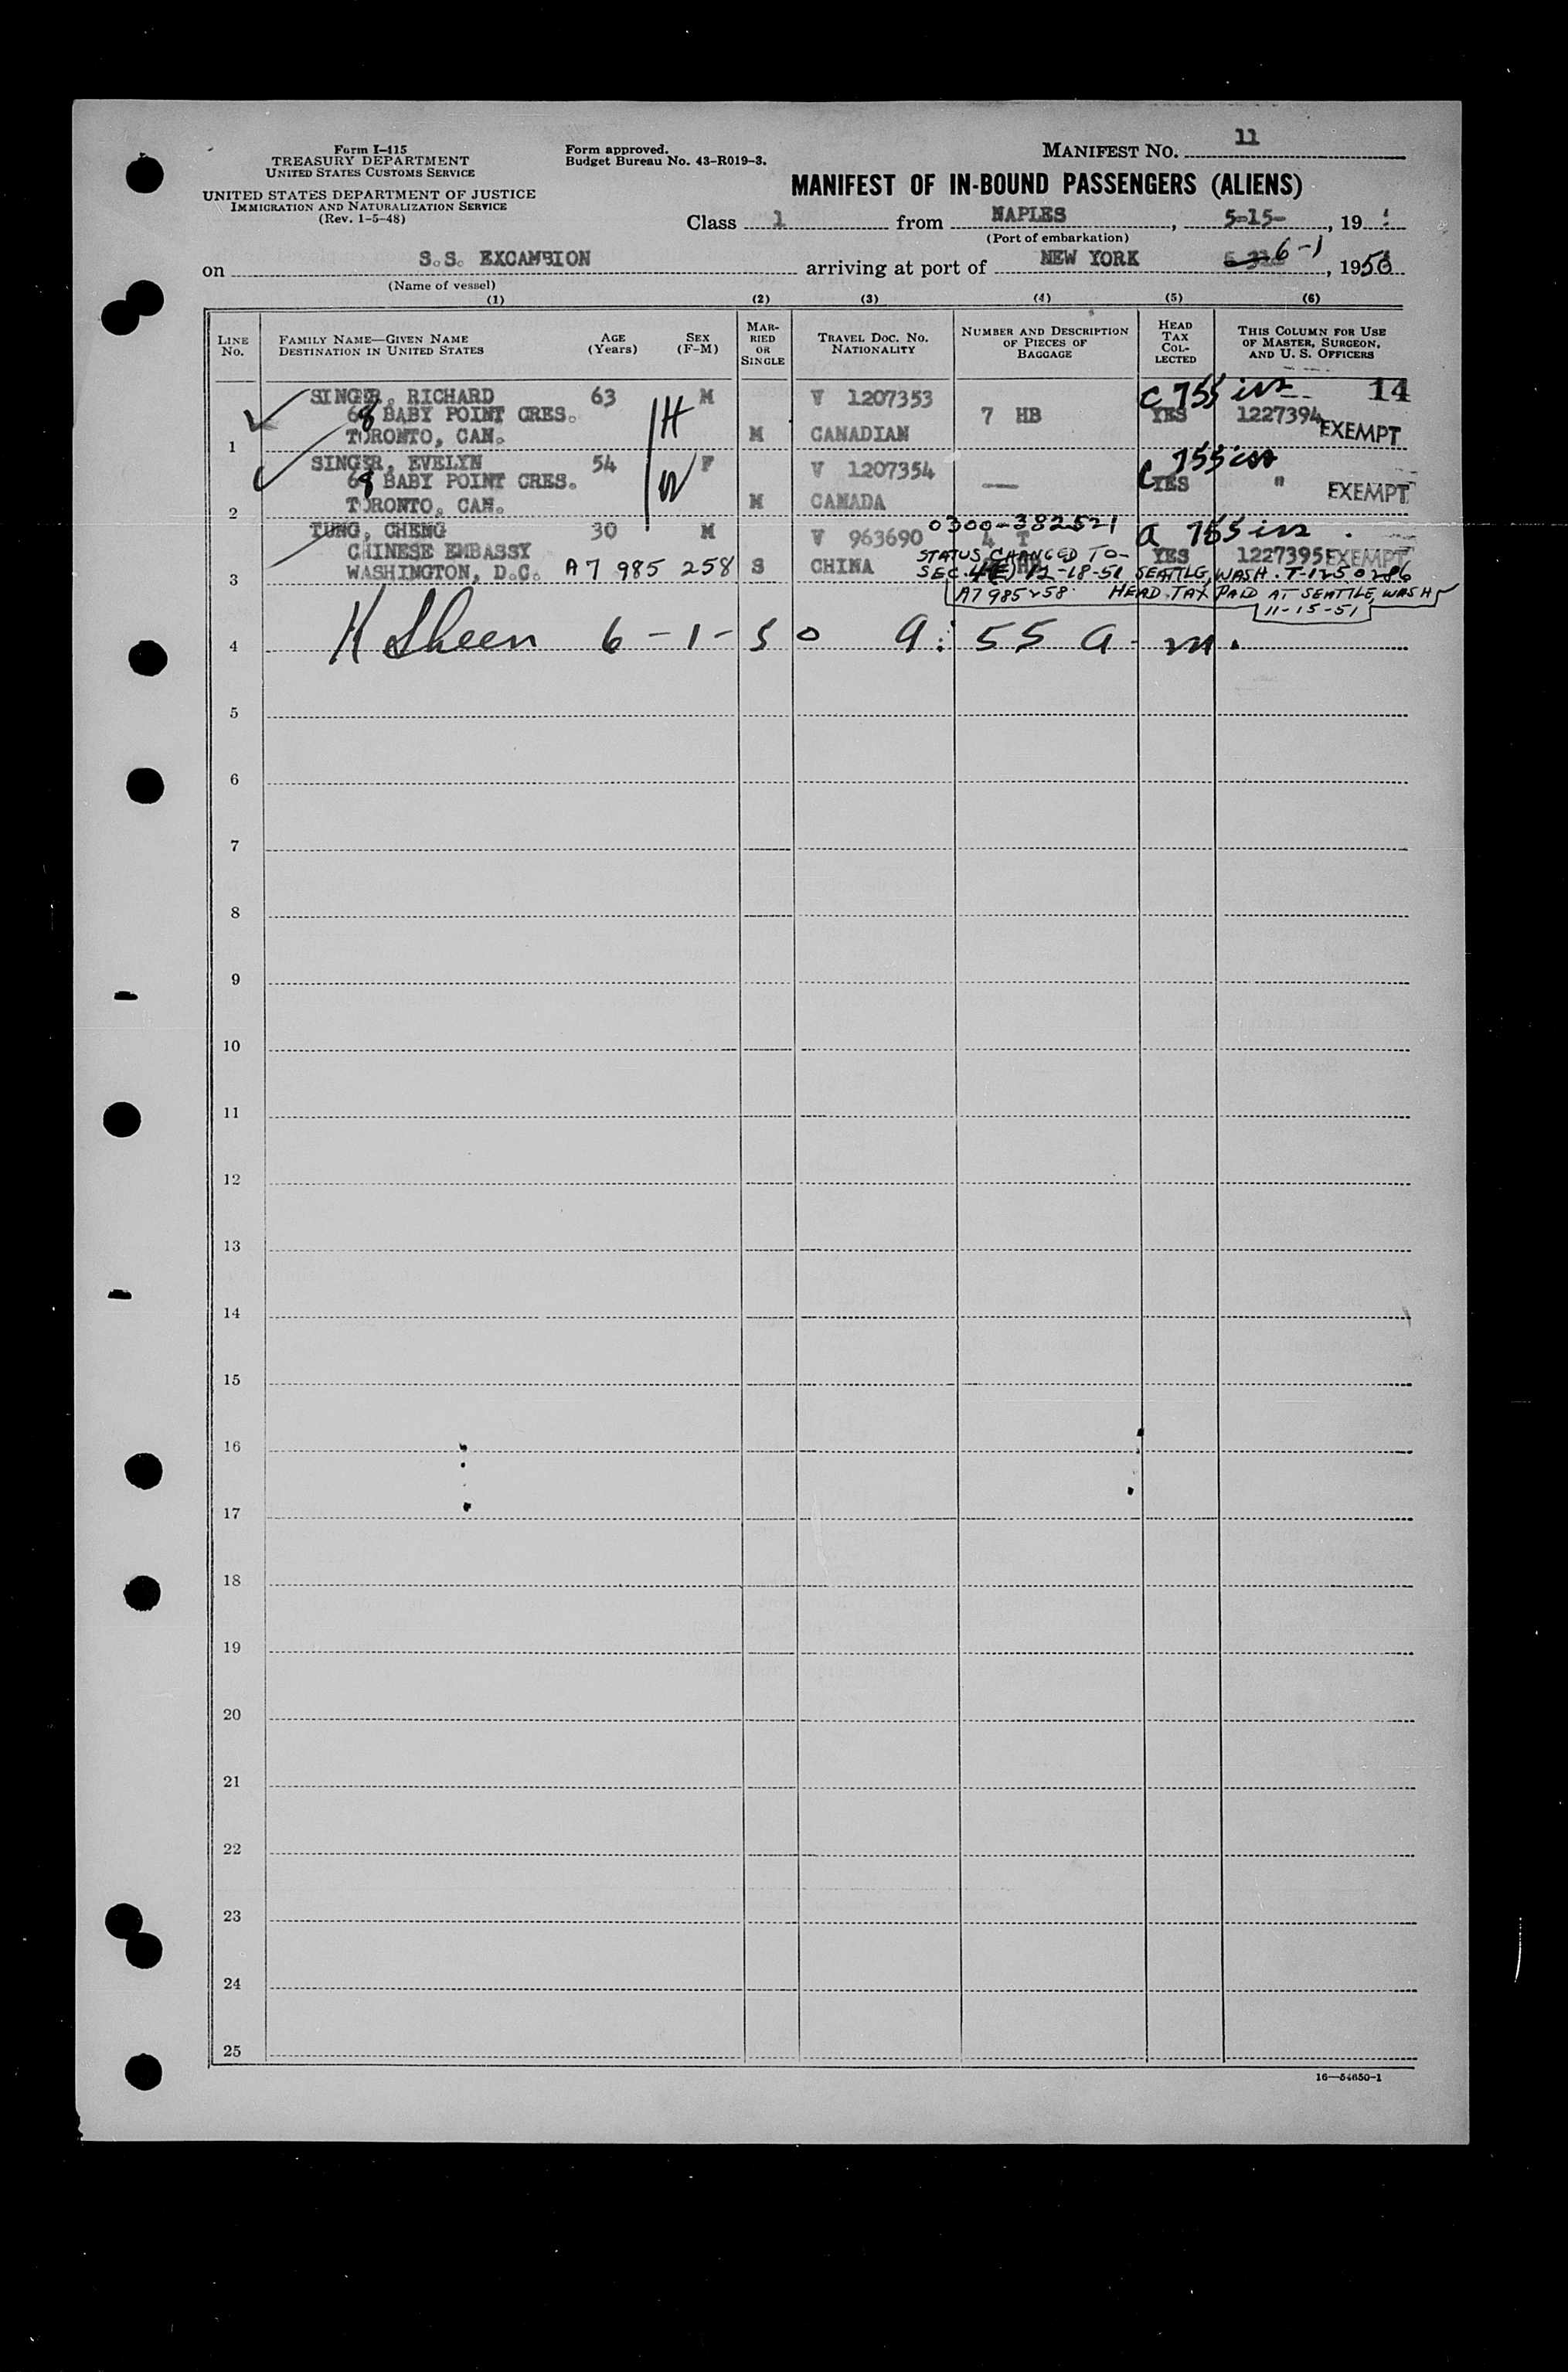 Form I-415
TREASURY DEPARTMENT
UNITED STATES CUSTOMS SERVICE
UNITED STATES DEPARTMENT OF JUSTICE
IMMIGRATION AND NATURALIZATION SERVICE
(Rev. 1-5-48)
Form approved.
Budget Bureau No. 43-R019-3.
MANIFEST NO. 11
MANIFEST OF IN-BOUND PASSENGERS (ALIENS)
Class 1 from NAPLES, 5-15-, 19
(Port of embarkation)
on S.S. EXCAMBION arriving at port of NEW YORK 6-1, 1950
(Name of vessel)
(1) (2) (3) (4) (5) (6)
LINE NO. FAMILY NAME—GIVEN NAME DESTINATION IN UNITED STATES AGE (Years) SEX (F-M) MARRIED OR SINGLE TRAVEL DOC. NO. NATIONALITY NUMBER AND DESCRIPTION OF PIECES OF BAGGAGE HEAD TAX COLLECTED THIS COLUMN FOR USE OF MASTER, SURGEON, AND U. S. OFFICERS
SINGER, RICHARD 63 M V 1207353 C 755 ins 14
68 BABY POINT CRES. H 7 HB YES 1227394
1 TORONTO, CAN. M CANADIAN EXEMPT
SINGER, EVELYN 54 F V 1207354 C 755 ins
68 BABY POINT CRES. W — YES " EXEMPT
2 TORONTO, CAN. M CANADA
0300-382521
TUNG, CHENG 30 M V 963690 4 T a 755 ins
CHINESE EMBASSY STATUS CHANGED TO- YES 1227395 EXEMPT
3 WASHINGTON, D.C. A7 985 258 S CHINA SEC. 4(E) 12-18-51 SEATTLE, WASH. T-1250286
A7985258 HEAD TAX PAID AT SEATTLE, WASH
11-15-51
4 H Sheen 6-1-50 9:55 a.m.
5
6
7
8
9
10
11
12
13
14
15
16
17
18
19
20
21
22
23
24
25
16—54650-1